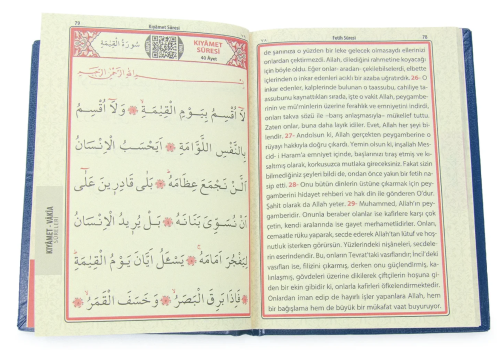 73
Kıyâmet Sûresi
سُورَةُ الْقِيٰمَةِ
KIYÂMET
SÛRESİ
40 Âyet
بِسْمِ اللّٰهِ الرَّحْمٰنِ الرَّحِيمِ
لَٓا اُقْسِمُ بِيَوْمِ الْقِيٰمَةِۙ وَلَٓا اُقْسِمُ
بِالنَّفْسِ اللَّوَّامَةِ اَيَحْسَبُ الْاِنْسَانُ
اَلَّنْ نَجْمَعَ عِظَامَهُ بَلٰى قَادِرِينَ عَلٰٓى
اَنْ نُسَوِّيَ بَنَانَهُ بَلْ يُرِيدُ الْاِنْسَانُ
لِيَفْجُرَ اَمَامَهُ يَسْـَٔلُ اَيَّانَ يَوْمُ الْقِيٰمَةِ
فَاِذَا بَرِقَ الْبَصَرُ وَخَسَفَ الْقَمَرُ
KIYÂMET - VÂKIA
SÛRELERİ
Fetih Sûresi
75
de şanınıza o yüzden bir leke gelecek olmasaydı ellerinizi
onlardan çektirmezdi. Allah, dilediğini rahmetine koyacağı
için böyle oldu. Eğer onlar- aradan- çekilebilselerdi, elbette
içlerinden o inkar edenleri acıklı bir azaba uğratırdık. 26- O
inkar edenler, kalplerinde bulunan o taassubu, cahiliye ta-
assubunu kaynattıkları sırada, işte o vakit Allah, peygambe-
rinin ve mü'minlerin üzerine ferahlık ve emniyetini indirdi,
onları takva sözü ile -barış anlaşmasıyla- mükellef tuttu.
Zaten onlar, buna daha layık idiler. Evet, Allah her şeyi bi-
lendir. 27- Andolsun ki, Allah gerçekten peygamberine o
rüyayı hakkıyla doğru çıkardı. Yemin olsun ki, inşallah Mes-
cid- i Haram'a emniyet içinde, başlarınızı tıraş etmiş ve kı-
saltmış olarak, korkusuzca mutlaka gireceksiniz. Fakat sizin
bilmediğiniz şeyleri bildi de, ondan önce yakın bir fetih na-
sip etti. 28- Onu bütün dinlerin üstüne çıkarmak için pey-
gamberini hidayet rehberi ve hak din ile gönderen O'dur.
Şahit olarak da Allah yeter. 29- Muhammed, Allah'ın pey-
gamberidir. Onunla beraber olanlar ise kafirlere karşı çok
çetin, kendi aralarında ise gayet merhametlidirler. Onları,
cemaatle rüku yaparak, secde ederek Allah'tan lütuf ve hoş-
nutluk isterken görürsün. Yüzlerindeki nişaneleri, secdele-
rin eserindendir. Bu, onların Tevrat'taki vasıflarıdır; İncil'deki
vasıfları ise, filizini çıkarmış, derken onu güçlendirmiş, ka-
lınlaşmış, gövdeleri üzerine dikilerek çiftçilerin hoşuna gi-
der bir ekin gibidir ki, onlarla kafirleri öfkelendirmektedir.
Onlardan iman edip de hayırlı işler yapanlara Allah, hem
bir bağışlama hem de büyük bir mükafat vaat buyuruyor.